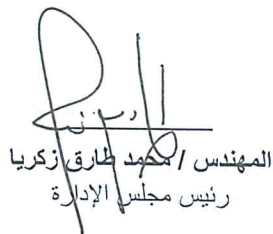 المهندس / محمد طارق زكريا
رئيس مجلس الإدارة